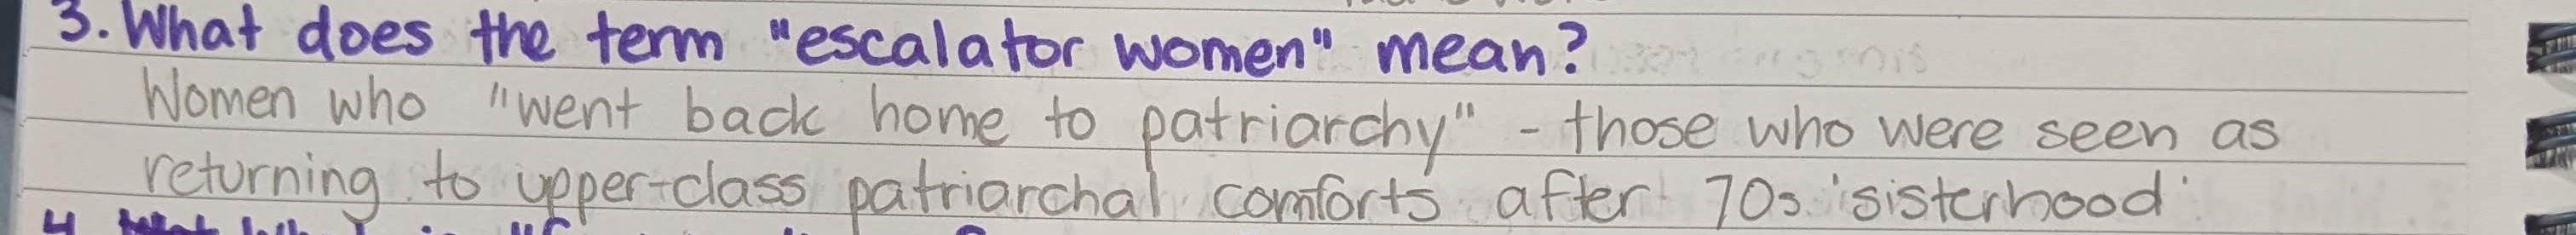 3. What does the term "escalator women" mean?
Women who "went back home to patriarchy" - those who were seen as
returning to upper-class patriarchal comforts after 70s 'sisterhood'
4